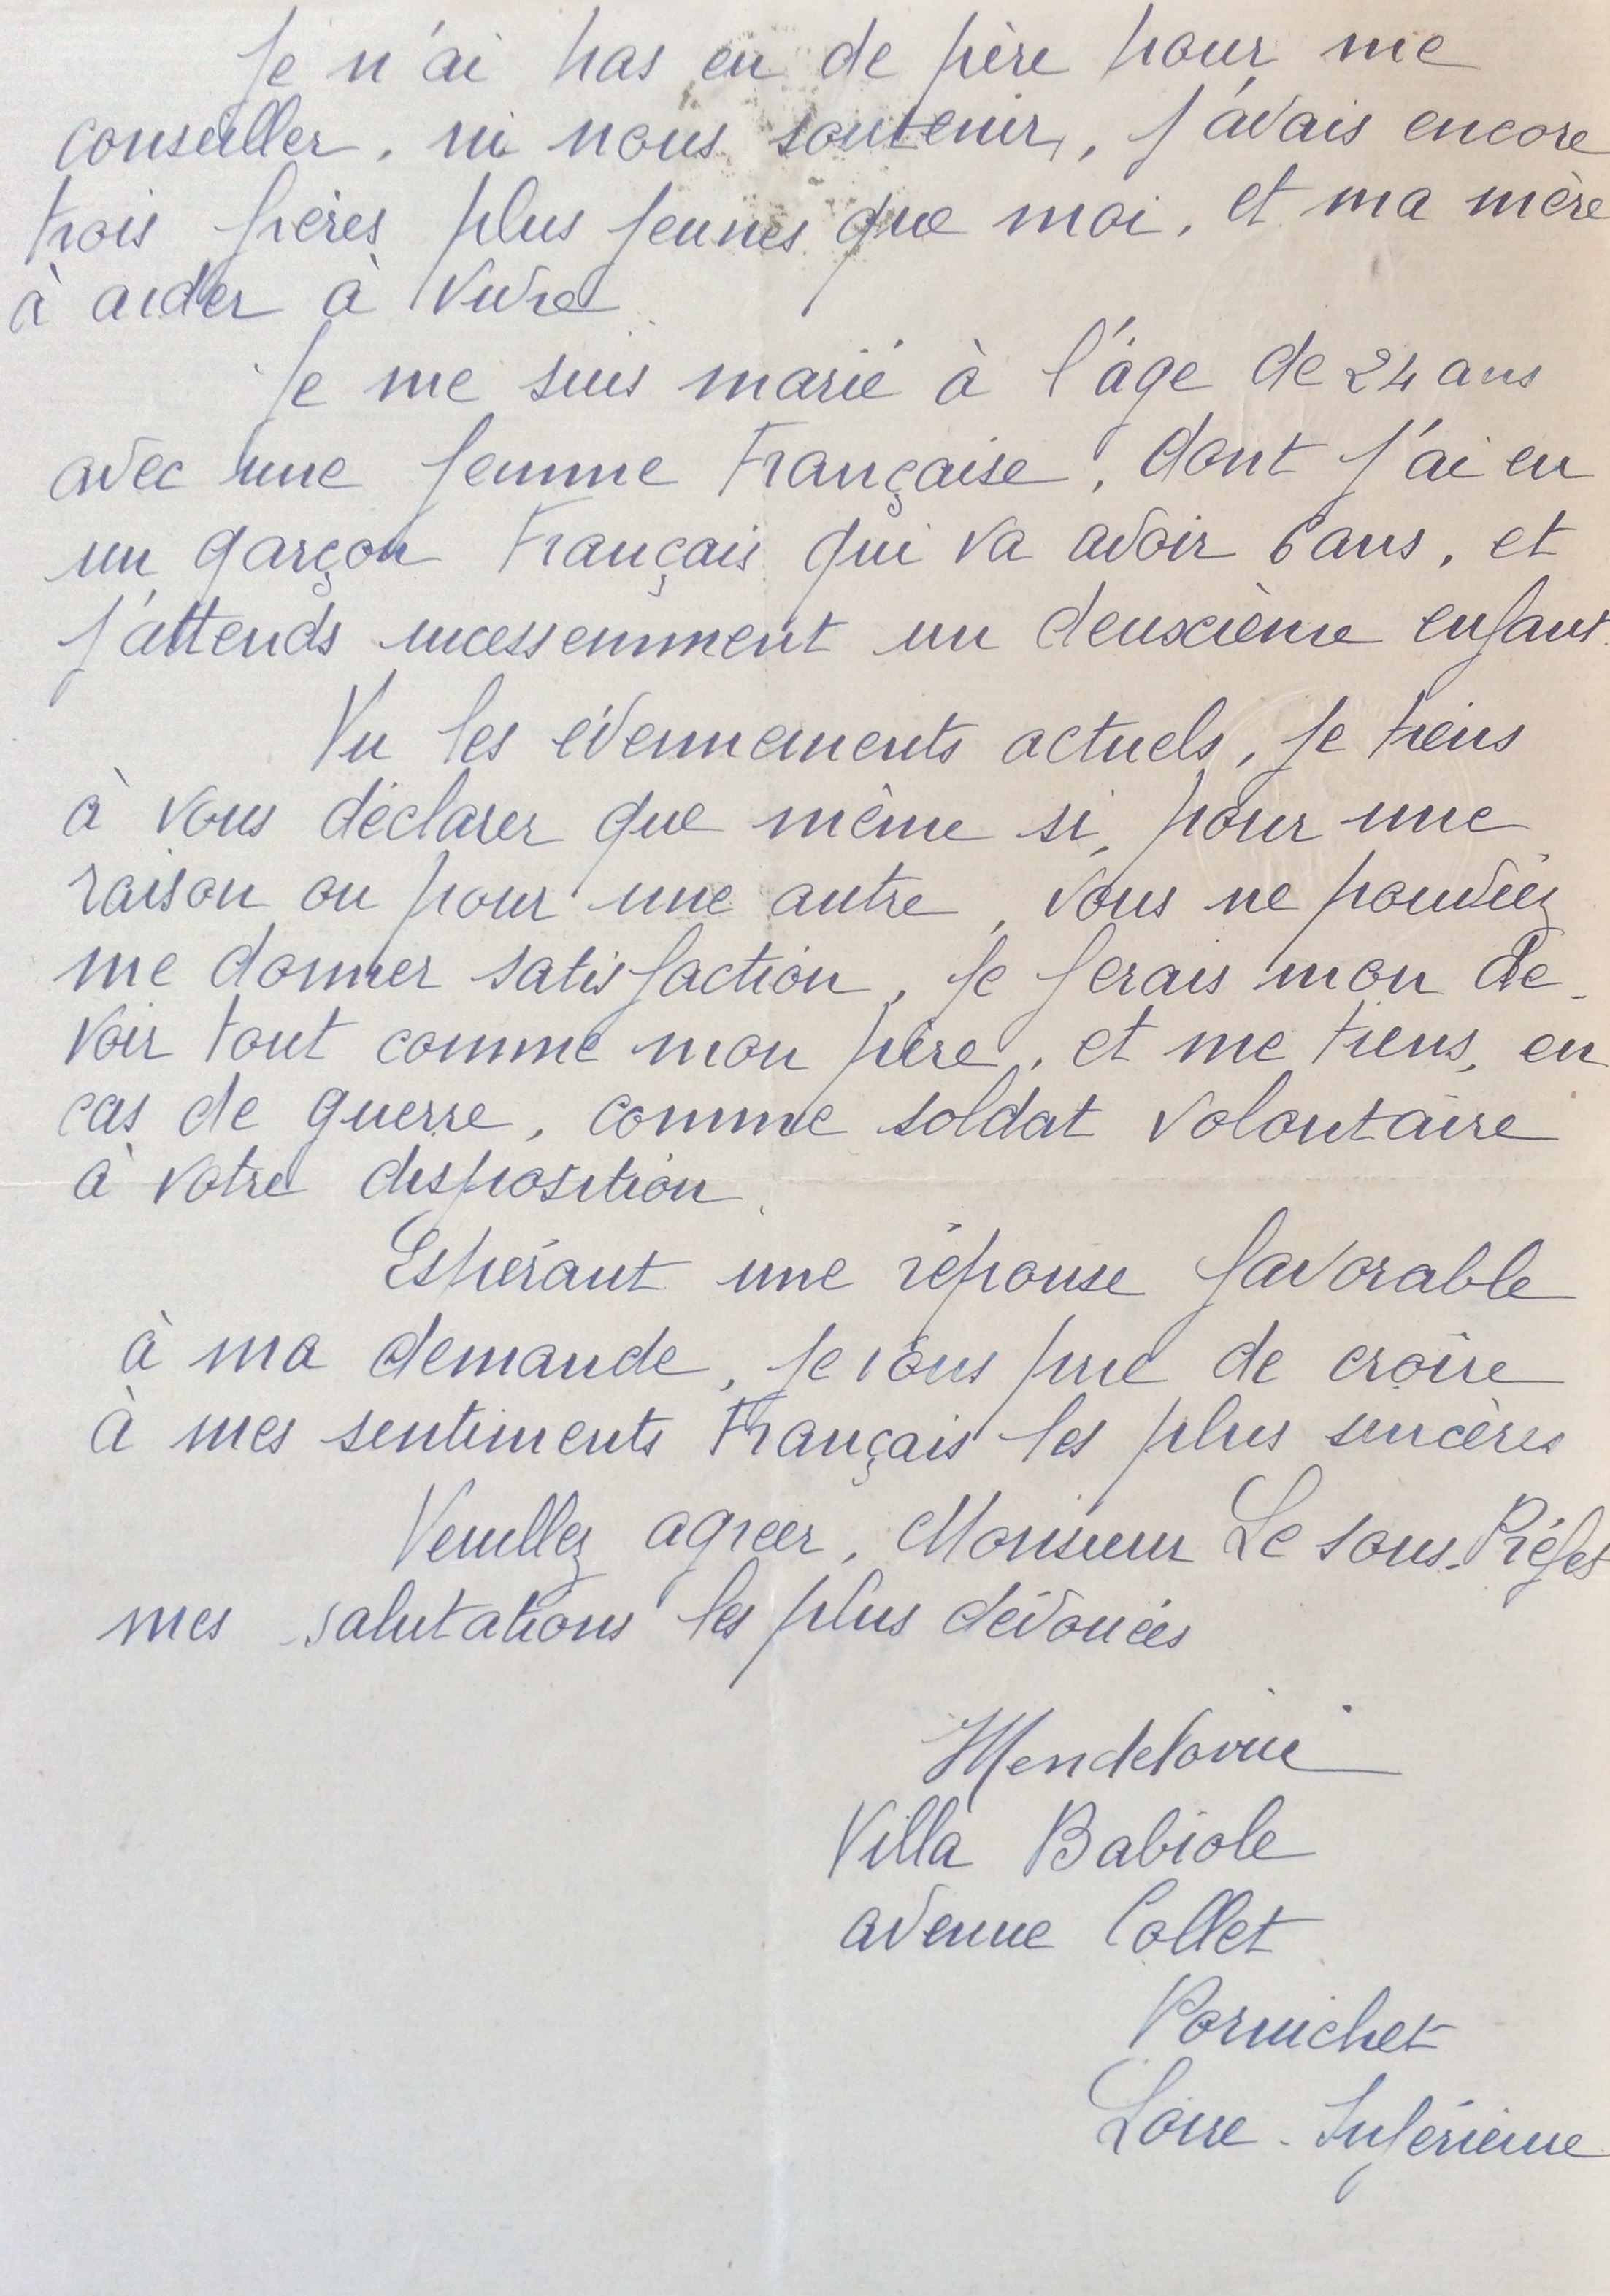 Je n'ai pas eu de père pour me
conseiller, ni nous soutenir, j'avais encore
trois frères plus jeunes que moi, et ma mère
à aider à vivre
Je me suis marié à l'âge de 24 ans
avec une femme Française, dont j'ai eu
un garçon Français qui va avoir 6 ans, et
j'attends incessemment un deuxième enfant.
Vu les évennements actuels, je tiens
à vous déclarer que même si, pour une
raison ou pour une autre, vous ne pouviez
me donner satisfaction, je ferais mon de-
voir tout comme mon père, et me tiens, en
cas de guerre, comme soldat volontaire
à votre disposition.
Espérant une réponse favorable
à ma demande, je vous prie de croire
à mes sentiments Français les plus sincères
Veuillez agréer, Monsieur Le sous-Préfet
mes salutations les plus dévouées
Mendelovici
Villa Babiole
avenue Collet
Pornichet
Loire-Inférieure